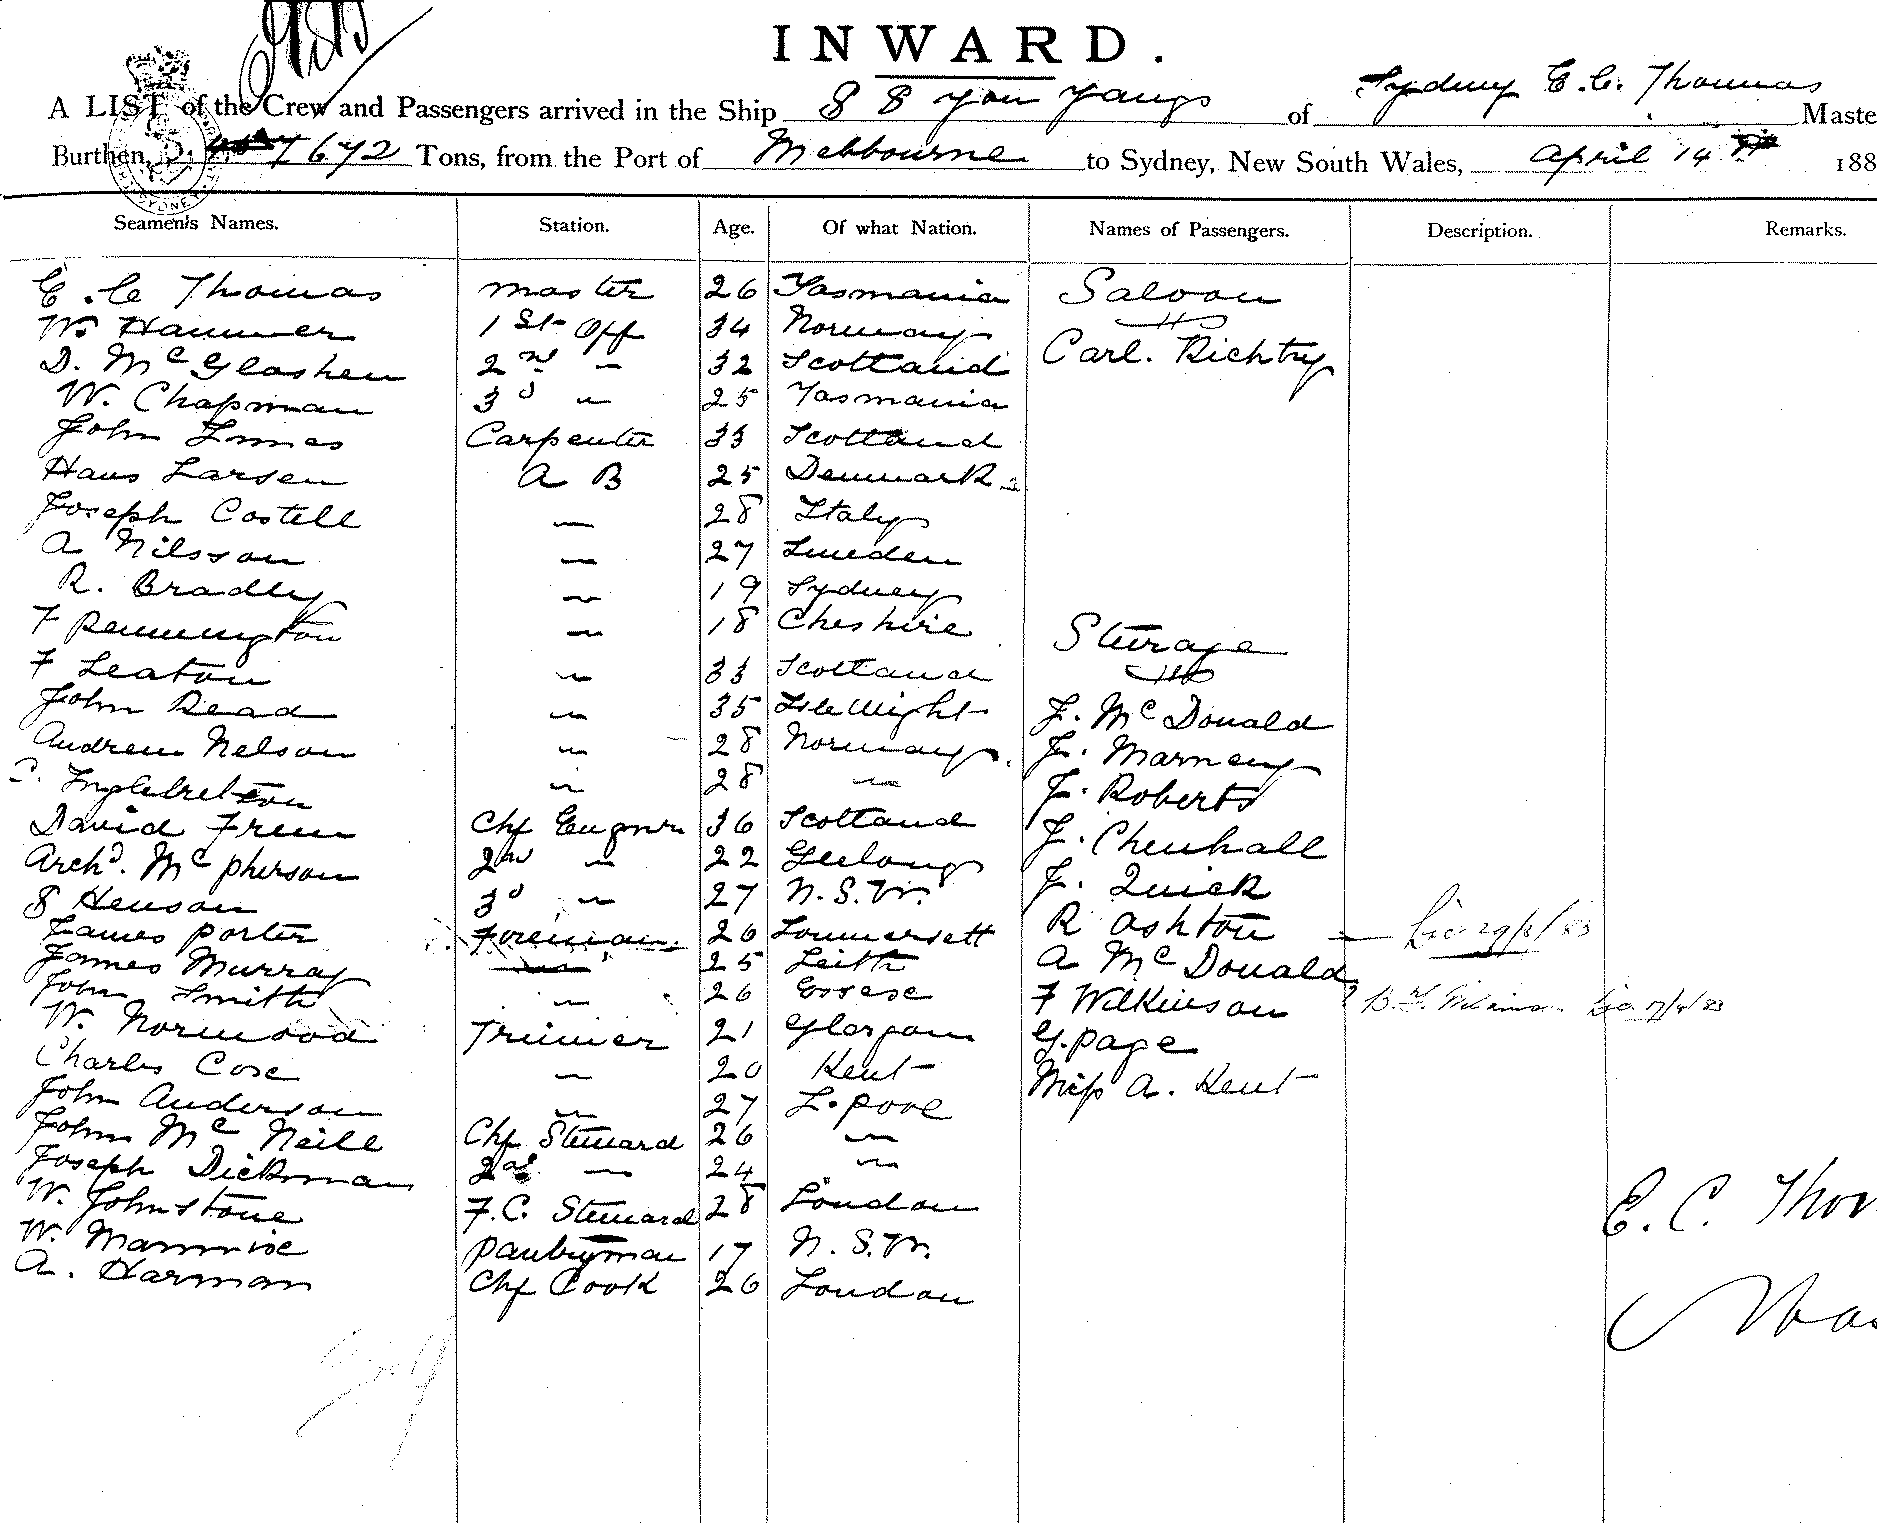 INWARD.
A LIST of the Crew and Passengers arrived in the Ship S S You Yangs of Sydney E. C. Thomas Maste
Burthen, 672 Tons, from the Port of Melbourne to Sydney, New South Wales, April 14th 188
Seamen's Names. Station. Age. Of what Nation. Names of Passengers. Description. Remarks.
E. C Thomas master 26 Tasmania Saloon
W. Hammer 1st Off 34 Norway
D. McGlashen 2nd " 32 Scotland Carl.
W. Chapman 3d " 25 Tasmania
John Innes Carpenter 33 Scotland
Hans Larsen A B 25 Denmark
Joseph Costell " 28 Italy
A Nilsson " 27 Sweden
R. Bradley " 19 Sydney
F Pennington " 18 Cheshire Steerage
F Leaton " 33 Scotland
John Read " 35 Isle Wight J. McDonald
Andrew Nelson " 28 Norway J. Marney
Inglebretson " 28 " J. Roberts
David Frew Chf Engineer 36 Scotland J. Chenhall
Archd. McPherson 2nd " 22 Geelong J. Quick
S Henson 3d " 27 N.S.W. R Ashton
James Porter Fireman 26 Sommersett A McDonald
James Murray " 25 Leith F Wilkinson
John Smith " 26 Essex G. Page
W. Norwood Trimmer 21 Glasgow Miss A. Kent
Charles Cose " 20 Kent
John Anderson " 27 L.pool
John McNeill Chf Steward 26 "
Joseph Dickman 2nd " 24 "
W. Johnstone F.C. Steward 28 London
W. Pantryman 17 N.S.W.
A. Harman Chf Cook 26 London
E. C. Thom